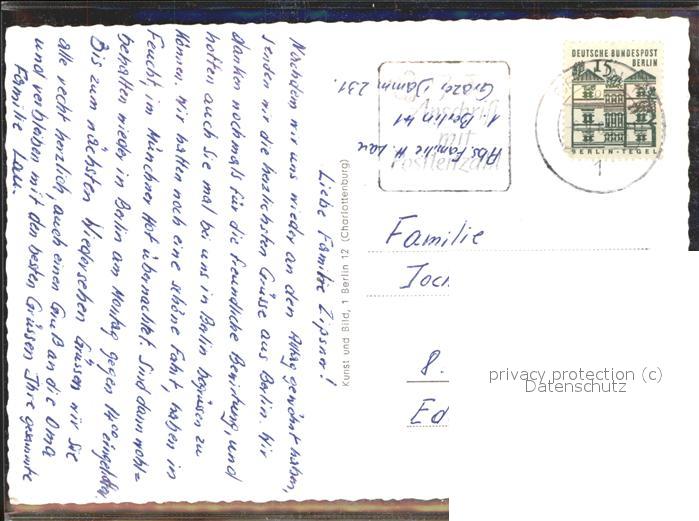 Liebe Familie Zipsner!
Nachdem wir uns wieder an den Alltag gewöhnt haben,
senden wir die herzlichsten Grüsse aus Berlin. Wir
danken nochmals für die freundliche Bewirtung, und
hoffen auch Sie mal bei uns in Berlin begrüsen zu
können. Wir hatten noch eine schöne Fahrt, haben in
Feucht, im Münchner Hof übernachtet. Sind dann wohl=
behalten wieder in Berlin am Montag gegen 1400 eingetroffen.
Bis zum nächsten Wiedersehen Grüssen wir Sie
alle recht herzlich, auch einen Gruß an die Oma
und verbleiben mit den besten Grüssen Ihre gesammte
Familie Lau.
Kunst und Bild, 1 Berlin 12 (Charlottenburg)
Abs. Familie H. Lau
1 Berlin 41
Grazer Damm 231.
Anschrift
mit
Postleitzahl
DEUTSCHE BUNDESPOST
BERLIN
15
BERLIN-TEGEL
1
Familie
8.
Ed
privacy protection (c)
Datenschutz